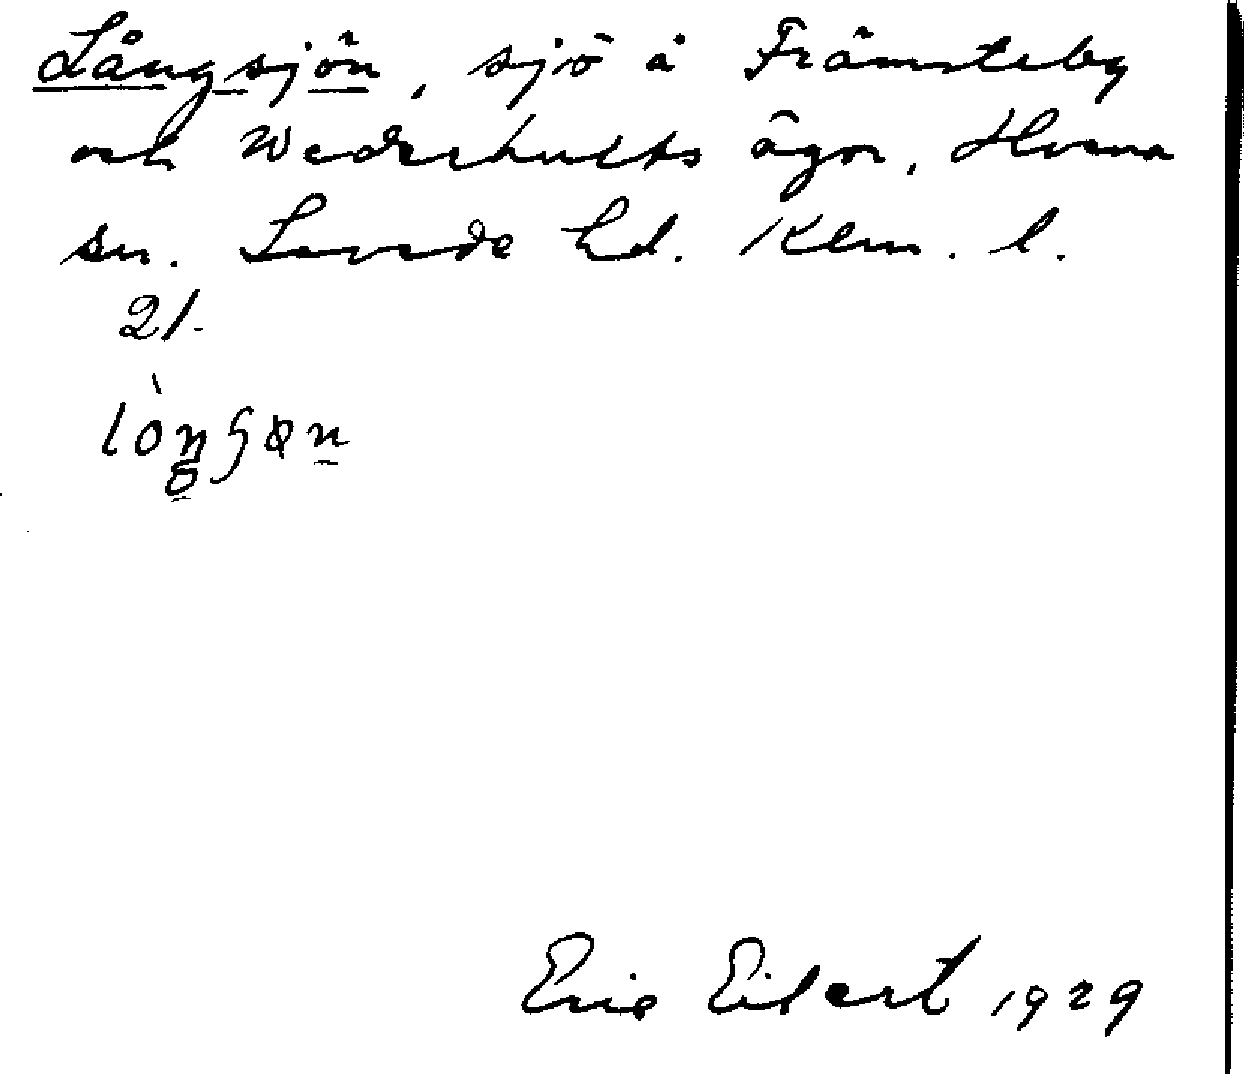 Långsjön, sjö å Främsteby
och Wederhults ägor, Hvena
sn. Sevede hd. Klm. l.
21.
Eric Eilert 1929